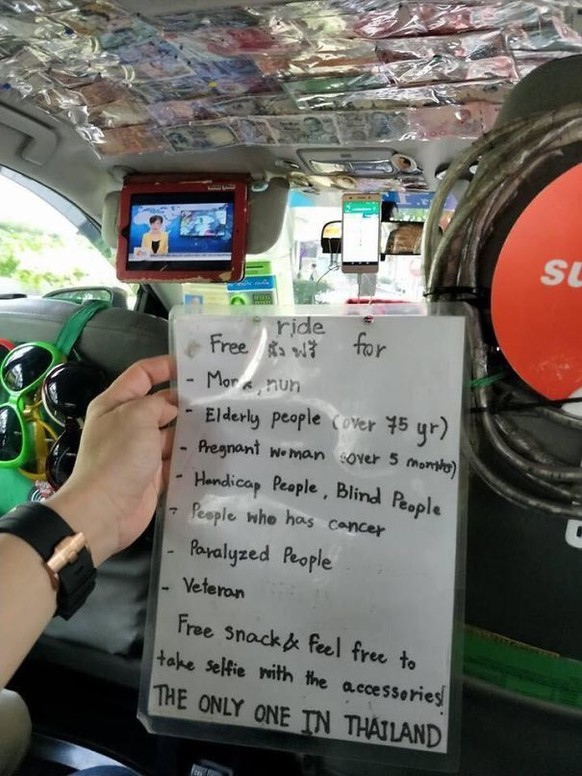 ride
Free นั่ง ฟรี for
- Monk, nun
- Elderly people (over 75 yr)
- Pregnant woman (over 5 months)
- Handicap People, Blind People
- People who has cancer
- Paralyzed People
- Veteran
Free snack & feel free to
take selfie with the accessories!
THE ONLY ONE IN THAILAND
SU